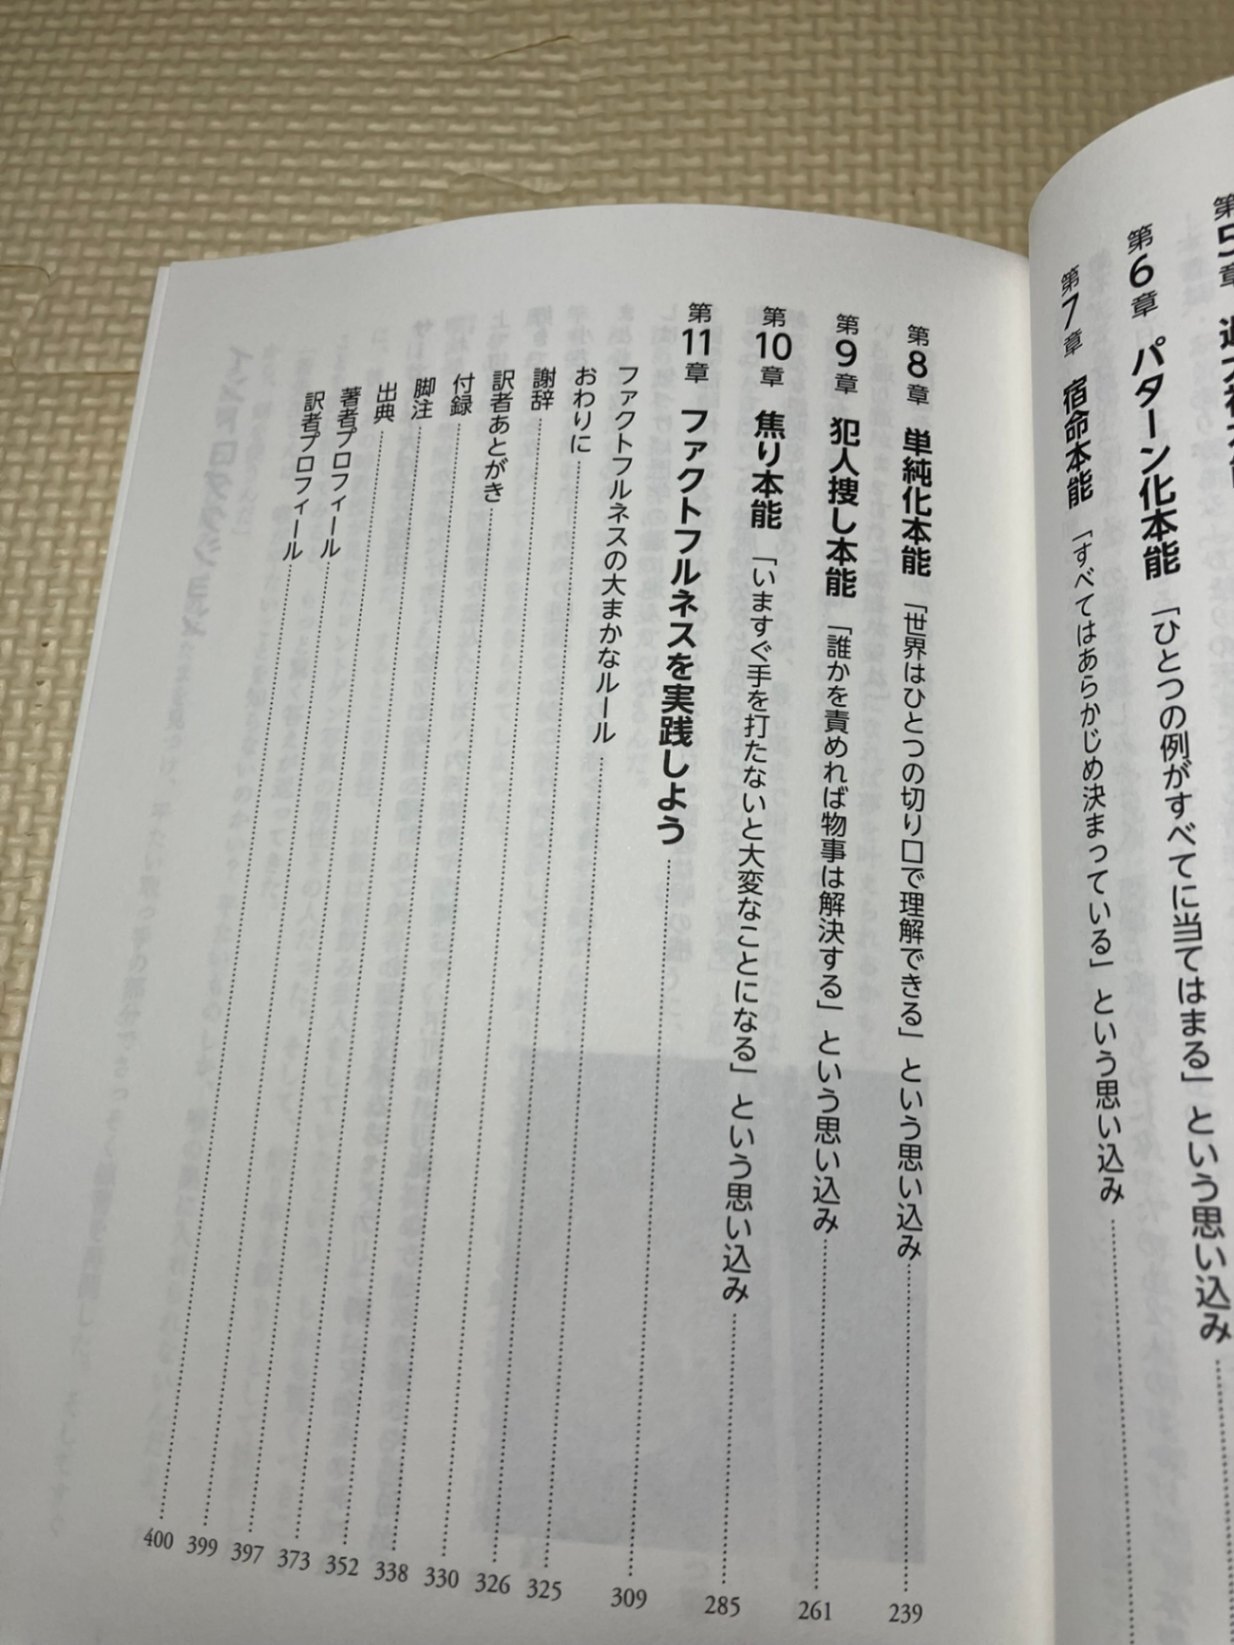 第5章
第6章 パターン化本能 「ひとつの例がすべてに当てはまる」という思い込み
第7章 宿命本能 「すべてはあらかじめ決まっている」という思い込み
第8章 単純化本能 「世界はひとつの切り口で理解できる」という思い込み 239
第9章 犯人捜し本能 「誰かを責めれば物事は解決する」という思い込み 261
第10章 焦り本能 「いますぐ手を打たないと大変なことになる」という思い込み 285
第11章 ファクトフルネスを実践しよう 309
ファクトフルネスの大まかなルール 325
おわりに 326
謝辞 330
訳者あとがき 338
付録 352
脚注 373
出典 397
著者プロフィール 399
訳者プロフィール 400